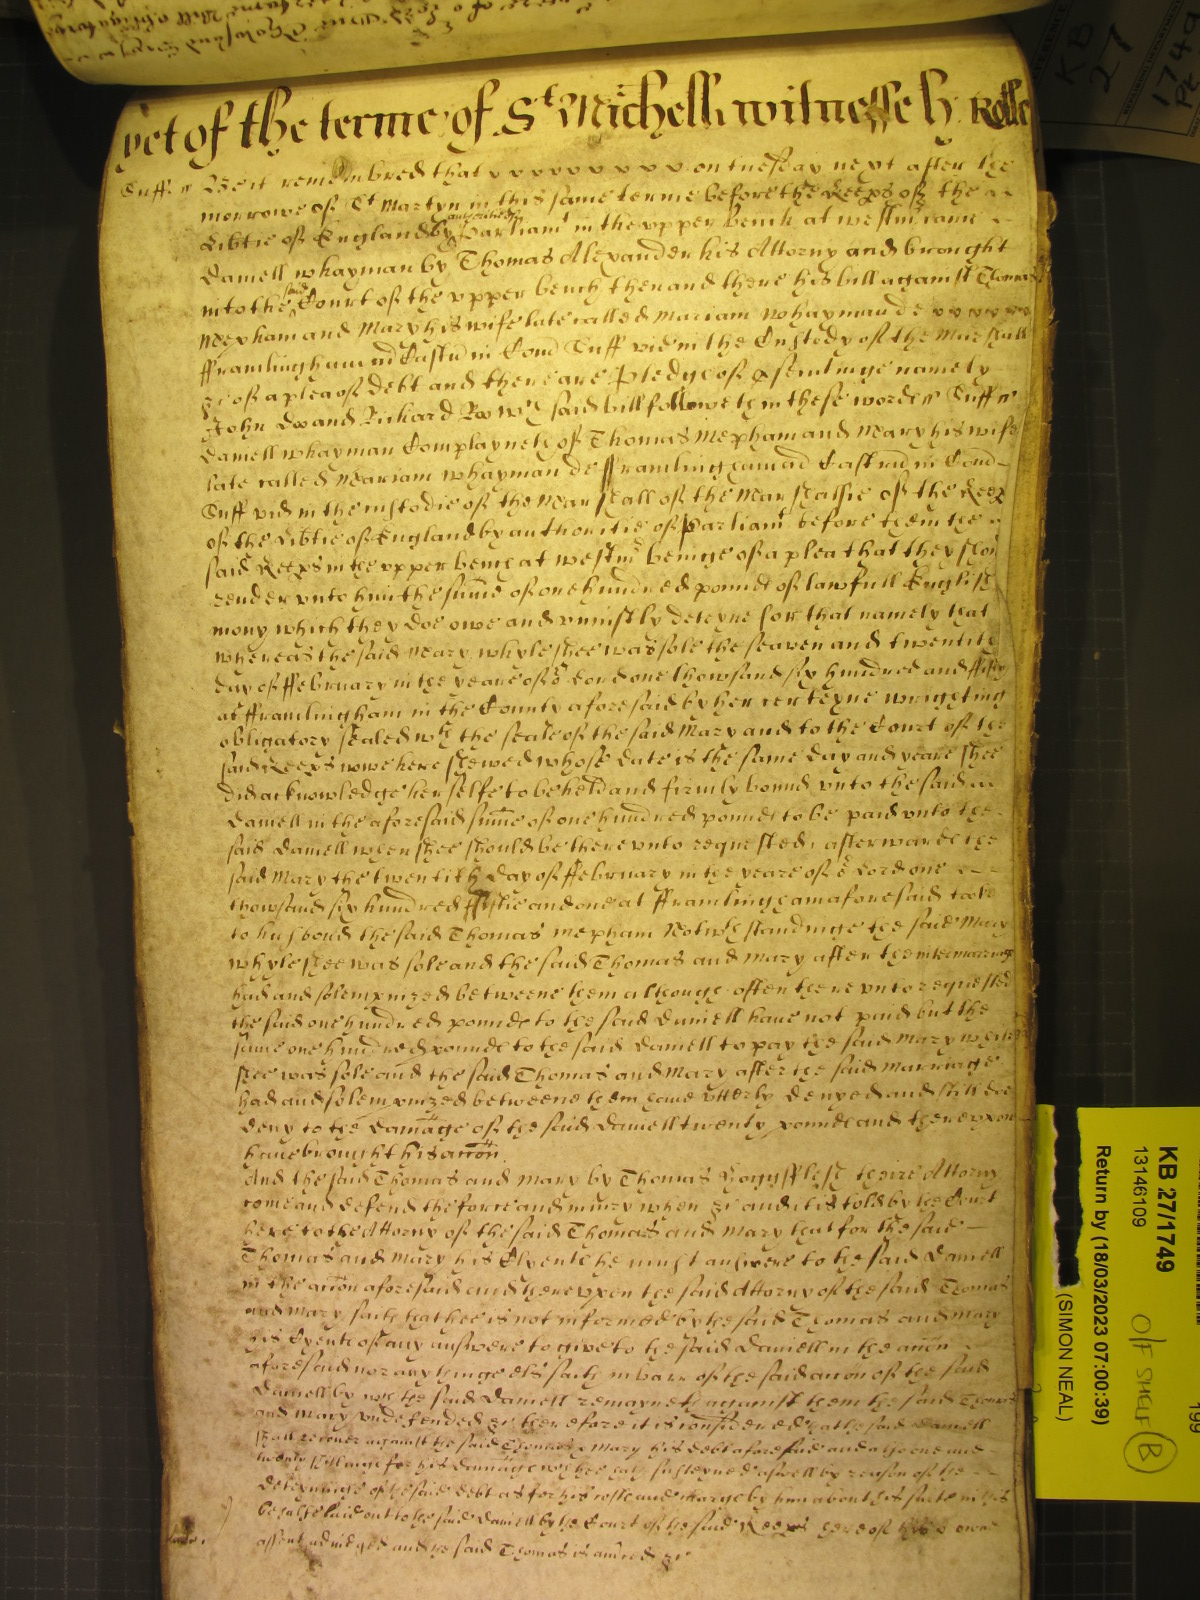 yet of the terme of St Michell witnesseth Rolle
Suff ss Be it remembred that v v v v v v v v on tuesday next after the
morrowe of St Martyn in this same terme before the Keeps of the
Libtie of England by authoritie of Parliamt in the vpper bench at westmr came
Daniell whayman by Thomas Alexander his Attorny and brought
into the said Court of the vpper bench then and there his bill against Thomas
Mepham and Mary his wife late called Mariam whayman de
fframlingham ad Castrū in Com Suff vid in the Custody of the Marshall
&c of a plea of debt and there are Pledges of &sentinge namely
John Doo and Richard Roo wch said bill followeth in these wordes ss Suff ss
Daniell whayman Complayneth of Thomas Mepham and Mary his wife
late called Mariam whayman de fframlingham ad Castrū in Com
Suff vid in the custodie of the Marshall of the Marshalsie of the Keeps
of the Libtie of England by authoritie of Parliamt before them the
said Keeps in the vpper bench at westmr beinge of a plea that they
render vnto him the sum̄e of one hundred poundes of lawfull English
mony which they doe owe and vniustly deteyne for that namely that
whereas the said Mary whyle shee was sole the seaven and twentith
day of ffebruary in the yeare of or Lord one thowsand six hundred and fifty
at fframlingham in the County aforesaid by her certeyne wrighting
obligatory sealed wth the seale of the said Mary and to the Court of the
said Keeps nowe here shewed whose date is the same day and yeare shee
did acknowledge her selfe to be held and firmly bound vnto the said
Daniell in the aforesaid sum̄e of one hundred poundes to be paid vnto the
said Daniell when shee should be therevnto requested, afterwardes the
said Mary the twentith day of ffebruary in the yeare of or Lord one
thowsand six hundred fiftie and one at fframlingham aforesaid tooke
to husbond the said Thomas Mepham Notwthstandinge the said Mary
whyle shee was sole and the said Thomas and Mary after the intermarriage
had and solempnized betweene them although often therevnto requested
the said one hundred poundes to the said Daniell have not paid but the
same one hundred poundes to the said Daniell to pay the said Mary while
shee was sole and the said Thomas and Mary after the said marriage
had and solempnized betweene them have vtterly denyed and still doe
deny to the damage of the said Daniell twenty poundes and therevpon
have brought his acc̄on
And the said Thomas and Mary by Thomas theire Attorny
come and defend the force and iniury when &c and it is told by the Court
here to the Attorny of the said Thomas and Mary that for the said
Thomas and Mary his Clyents he must answere to the said Daniell
in the acc̄on aforesaid and herevpon the said Attorny of the said Thomas
and Mary saith that hee is not informed by the said Thomas and Mary
his Clyents of any answere to give to the said Daniell in the acc̄on
aforesaid nor any thinge els saith in barr of the said acc̄on of the said
Daniell by wch the said Daniell remayneth against them the said Thomas
and Mary vndefended &c therefore it is considered that the said Daniell
shall recover against the said Thomas & Mary his debt aforesaid and also one and
twenty shillinges for his damage wch hee hath susteyned aswell by reason of the
deteyninge of the said debt as for his costes and charges by him about his suite in this
behalfe laid out to the said Daniell by the Court of the said Keeps here of his owne
assent adiudged and the said Thomas is am̄ced &c
KB 27
1749
KB 27/1749
13146109
Return by (18/03/2023 07:00:39)
(SIMON NEAL)
O/F SHELF B
199